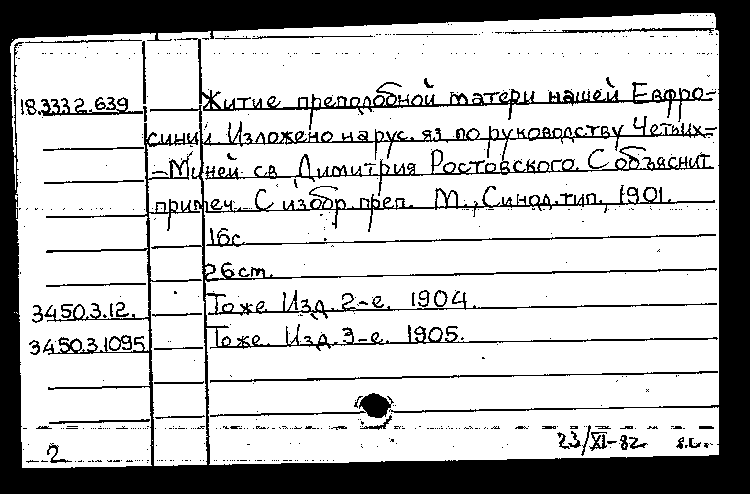 18.333 2.639 Житие преподобной матери нашей Евфро-
синии Изложено на рус. яз. по руководству Четьих-
-Миней св. Димитрия Ростовского. С объяснит.
примеч. С избор. преп. М., Синод. тип., 1901.
16с.
26см.
3450.3.12. То же. Изд. 2-е. 1904.
3450.3.1095 То же. Изд. 3-е. 1905.
2 23/XI-82.